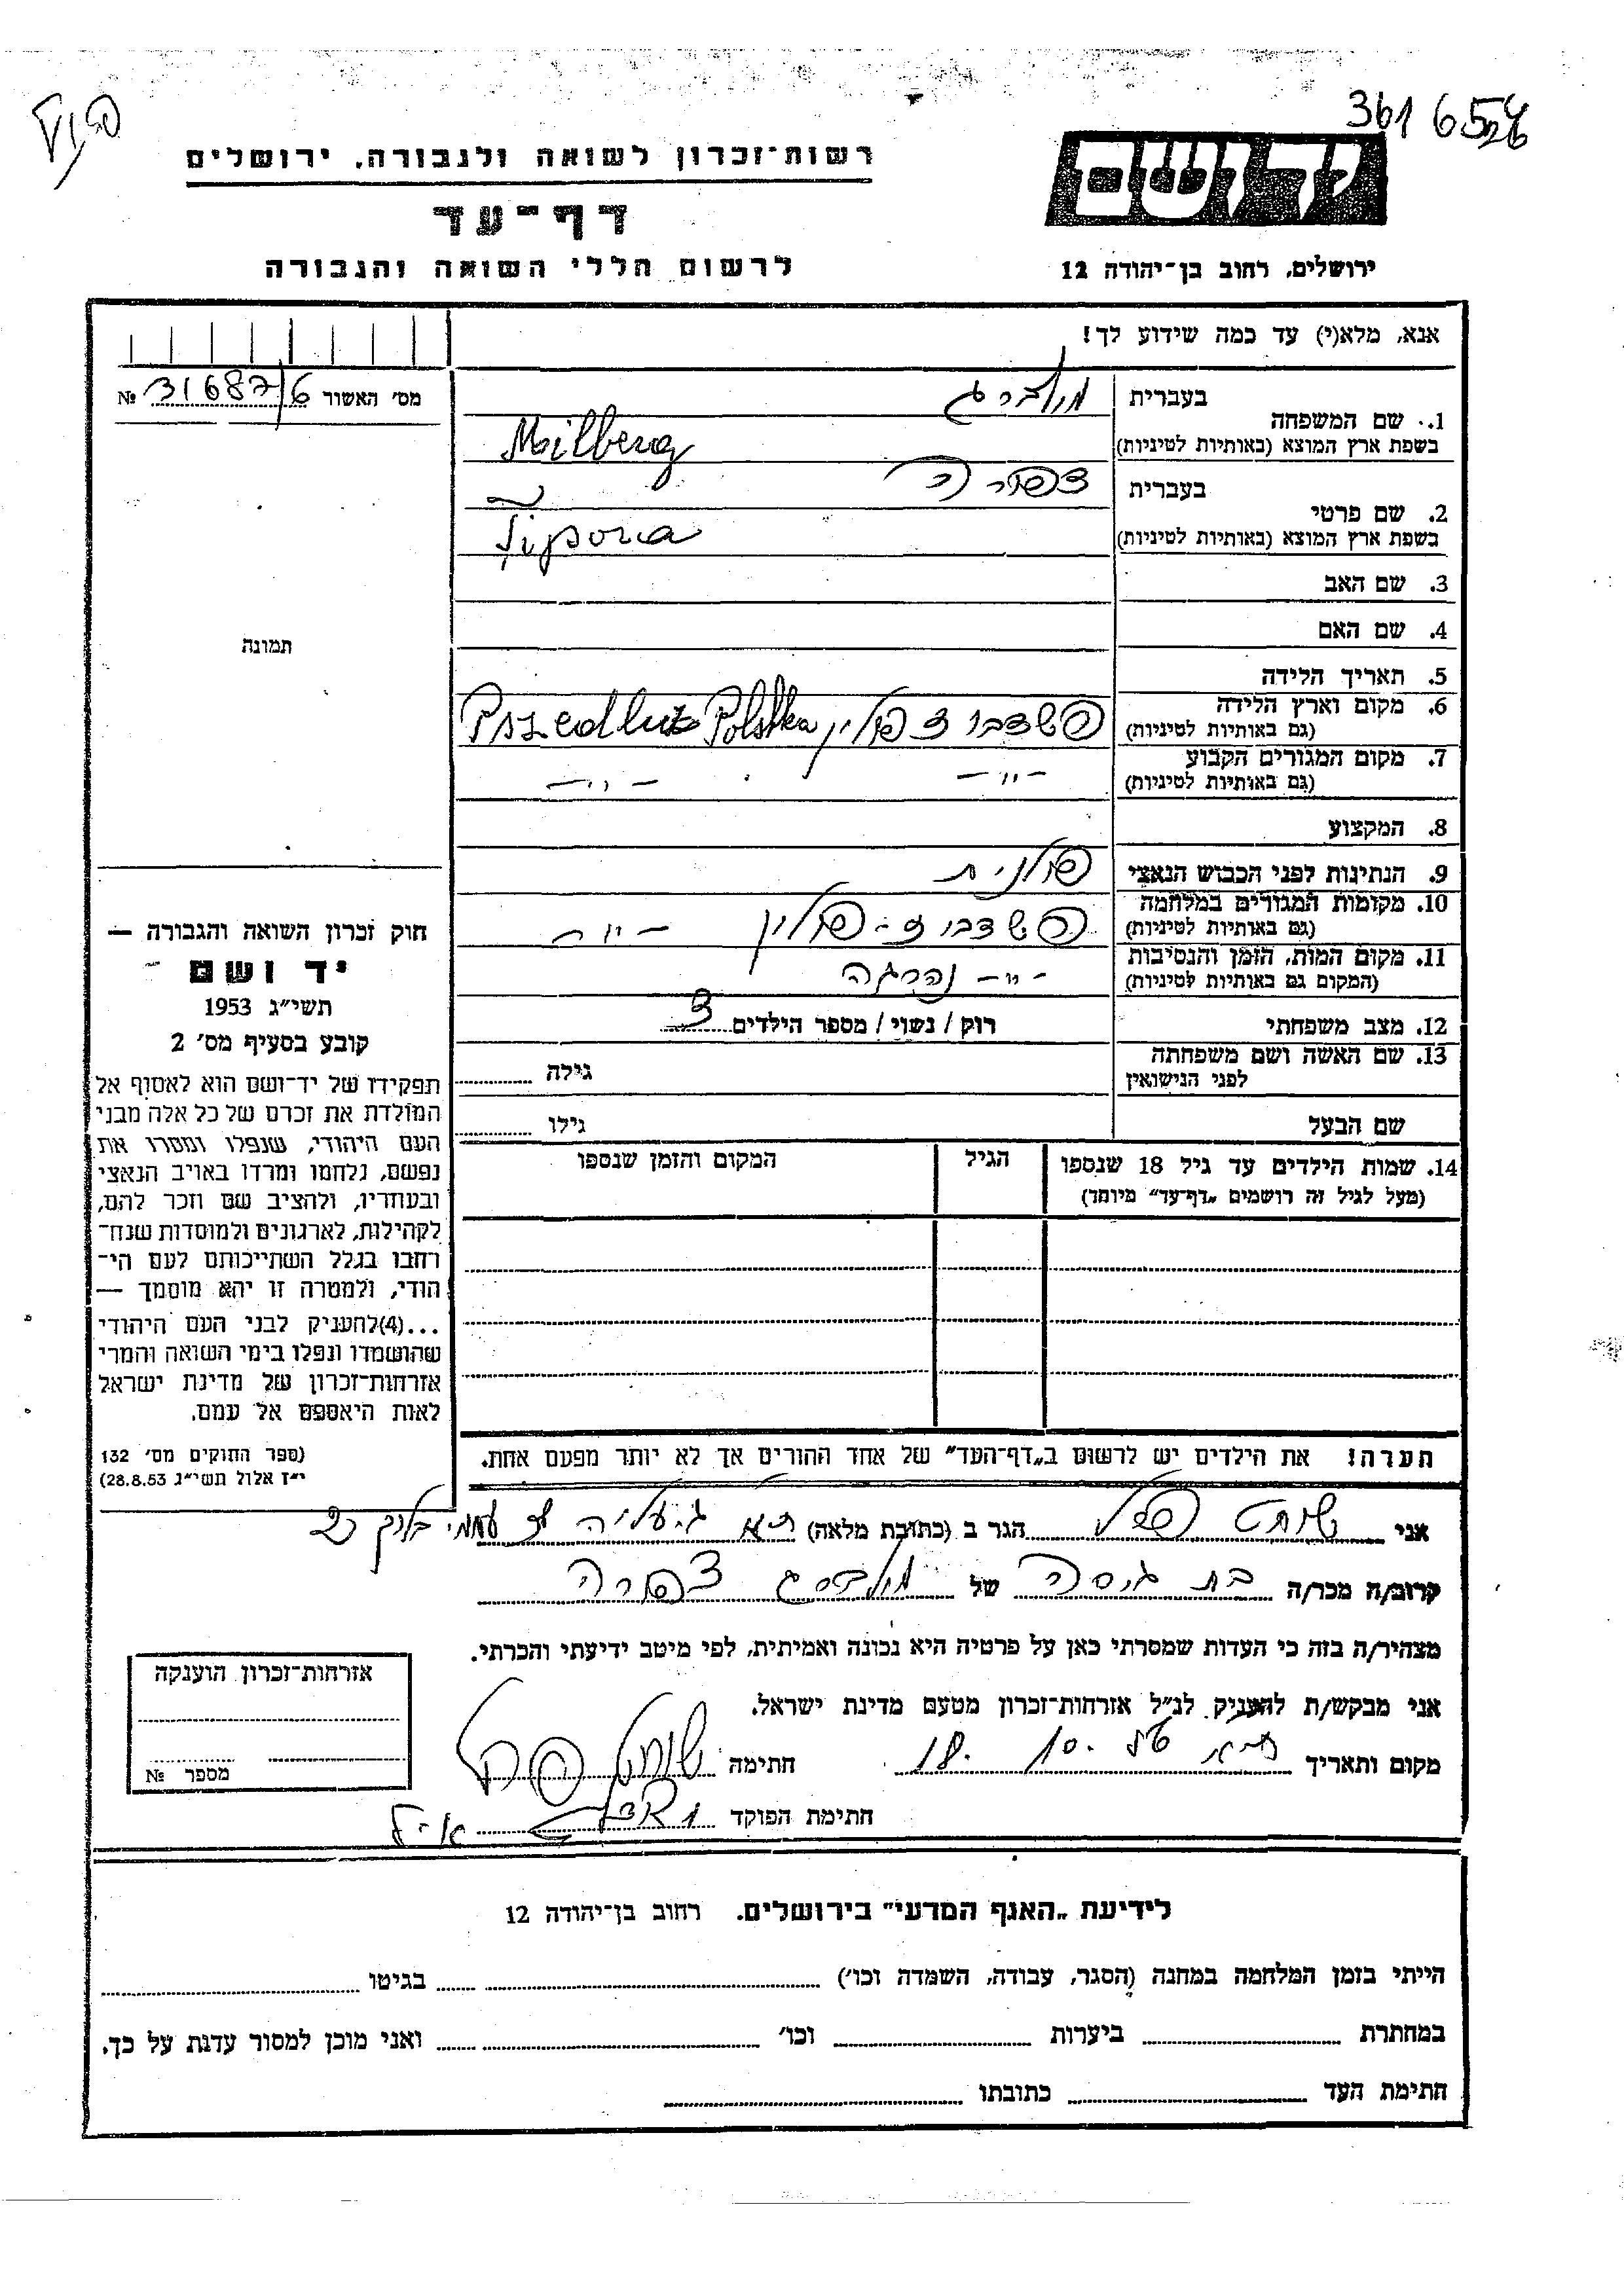 361 6526
פ.וץ
יד ושם
רשות־זכרון לשואה ולגבורה, ירושלים
דף־עד
לרשום חללי השואה והגבורה
ירושלים, רחוב בן־יהודה 12
אנא, מלא(י) עד כמה שידוע לך!
מס׳ האשור № 31687/6
1. שם המשפחה
בעברית מילברג
בשפת ארץ המוצא (באותיות לטיניות) Milberg
2. שם פרטי
בעברית צפורה
בשפת ארץ המוצא (באותיות לטיניות) Tipora
3. שם האב
4. שם האם
5. תאריך הלידה
6. מקום וארץ הלידה
(גם באותיות לטיניות) פשדבוז פולין Pszedbuz Polska
7. מקום המגורים הקבוע
(גם באותיות לטיניות) — " — — " —
8. המקצוע
9. הנתינות לפני הכבוש הנאצי פולנית
10. מקומות המגורים במלחמה
(גם באותיות לטיניות) פשדבוז - פולין — " —
11. מקום המות, הזמן והנסיבות
(המקום גם באותיות לטיניות) — " — נהרגה
12. מצב משפחתי רוק / נשוי / מספר הילדים 3
13. שם האשה ושם משפחתה
לפני הנישואין גילה
שם הבעל גילו
14. שמות הילדים עד גיל 18 שנספו
(מעל לגיל זה רושמים „דף־עד״ מיוחד)
הגיל
המקום והזמן שנספו
הערה! את הילדים יש לרשום ב„דף־העד״ של אחד ההורים אך לא יותר מפעם אחת.
תמונה
חוק זכרון השואה והגבורה —
יד ושם
תשי״ג 1953
קובע בסעיף מס׳ 2
תפקידו של יד־ושם הוא לאסוף אל
המולדת את זכרם של כל אלה מבני
העם היהודי, שנפלו ומסרו את
נפשם, נלחמו ומרדו באויב הנאצי
ובעוזריו, ולהציב שם וזכר להם,
לקהילות, לארגונים ולמוסדות שנח־
רבו בגלל השתייכותם לעם הי־
הודי, ולמטרה זו יהא מוסמך —
...(4)להעניק לבני העם היהודי
שהושמדו ונפלו בימי השואה והמרי
אזרחות־זכרון של מדינת ישראל
לאות היאספם אל עמם.
(ספר החוקים מס׳ 132
י״ז אלול תשי״ג 28.8.53)
אני שוחט הגר ב (כתובת מלאה) ת״א
קרוב/ה מכר/ה בת גיסה של מילברג צפורה
מצהיר/ה בזה כי העדות שמסרתי כאן על פרטיה היא נכונה ואמיתית, לפי מיטב ידיעתי והכרתי.
אני מבקש/ת להעניק לנ״ל אזרחות־זכרון מטעם מדינת ישראל.
מקום ותאריך ת״א 18.10. חתימה שוחט
חתימת הפוקד
אזרחות־זכרון הוענקה
מספר №
לידיעת „האגף המדעי״ בירושלים. רחוב בן־יהודה 12
הייתי בזמן המלחמה במחנה (הסגר, עבודה, השמדה וכו׳) בגיטו
במחתרת ביערות וכו׳ ואני מוכן למסור עדות על כך.
חתימת העד כתובתו